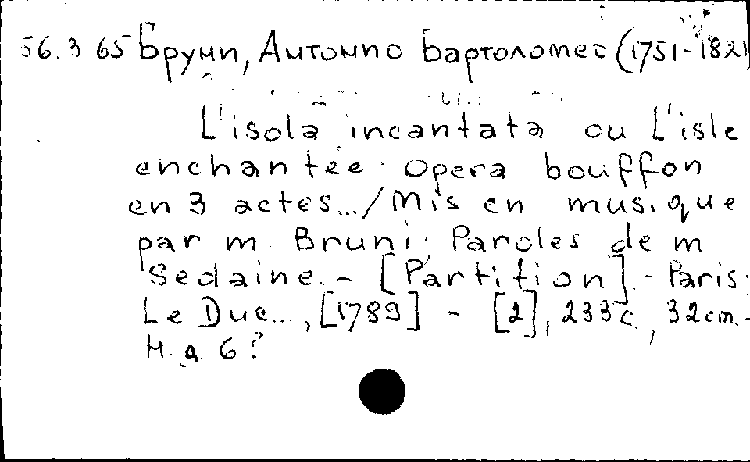 56.3 65 Бруни, Антонио Бартоломео (1751-1821)
L'isola incantata ou L'isle
enchantée. Opera bouffon
en 3 actes.../Mis en musique
par m. Bruni; Paroles de m
Sedaine. - [Partition]. - Paris:
Le Duc..., [1789] - [2], 233 с., 32 cm. -
Н. д. 6?